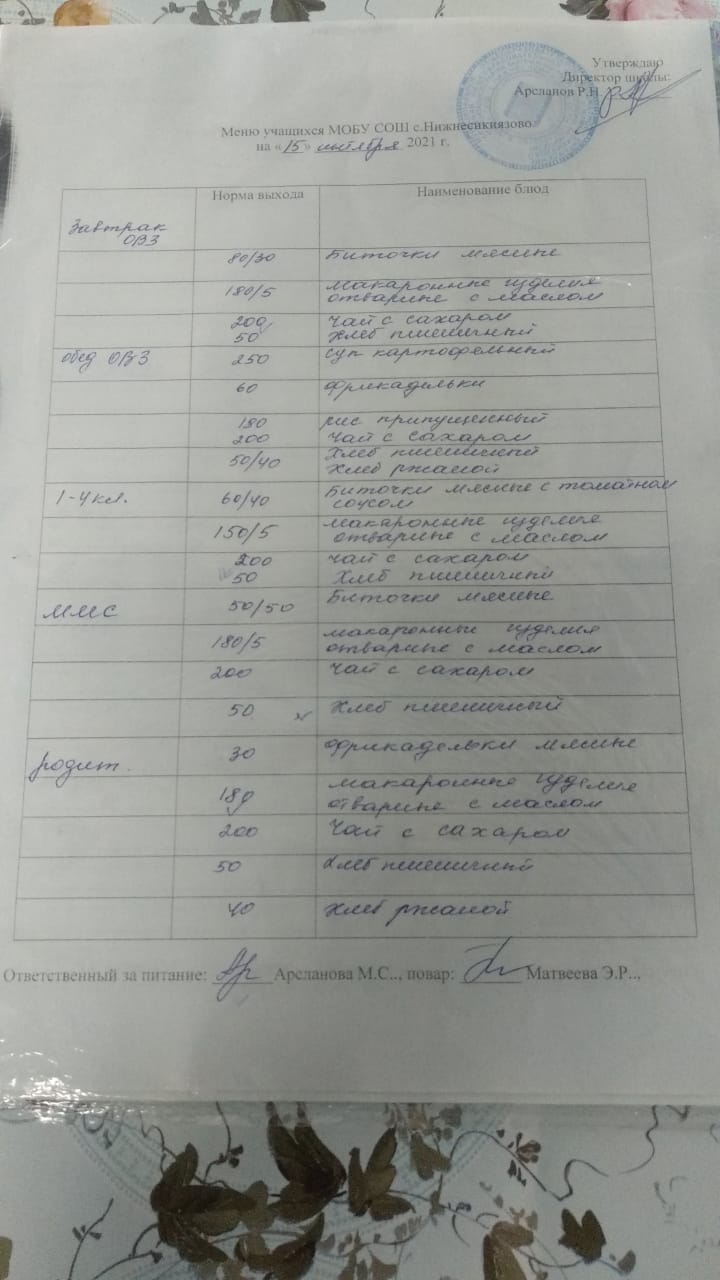 Утверждаю
Директор школы:
Арсланов Р.Н.
Меню учащихся МОБУ СОШ с.Нижнесикиязово
на «15» сентября 2021 г.
Норма выхода Наименование блюд
Завтрак
ОВЗ
80/30 Биточки мясные
180/5 макаронные изделия
отварные с маслом
200 Чай с сахаром
50 Хлеб пшеничный
обед ОВЗ 250 суп картофельный
60 фрикадельки
180 рис припущенный
200 Чай с сахаром
50/40 Хлеб пшеничный
Хлеб ржаной
1-4 кл. 60/40 Биточки мясные с томатном
соусом
150/5 макаронные изделия
отварные с маслом
200 Чай с сахаром
50 Хлеб пшеничный
ММС 50/50 Биточки мясные
180/5 макаронные изделия
отварные с маслом
200 Чай с сахаром
50 Хлеб пшеничный
родит. 30 Фрикадельки мясные
180 макаронные изделия
отварные с маслом
200 Чай с сахаром
50 Хлеб пшеничный
40 Хлеб ржаной
Ответственный за питание: Арсланова М.С.., повар: Матвеева Э.Р..,